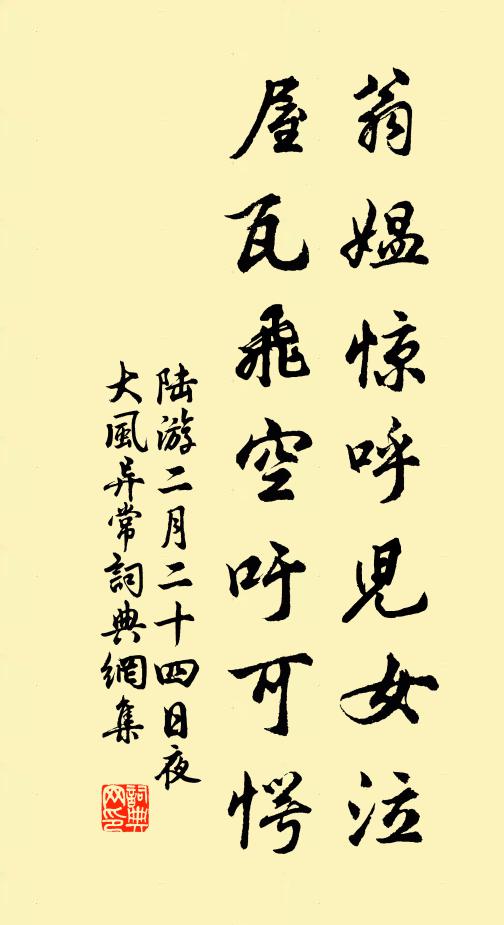 翁媪惊呼児女泣
屋瓦飛空吁可愕
陆游二月二十四日夜
大風异常詞典網集